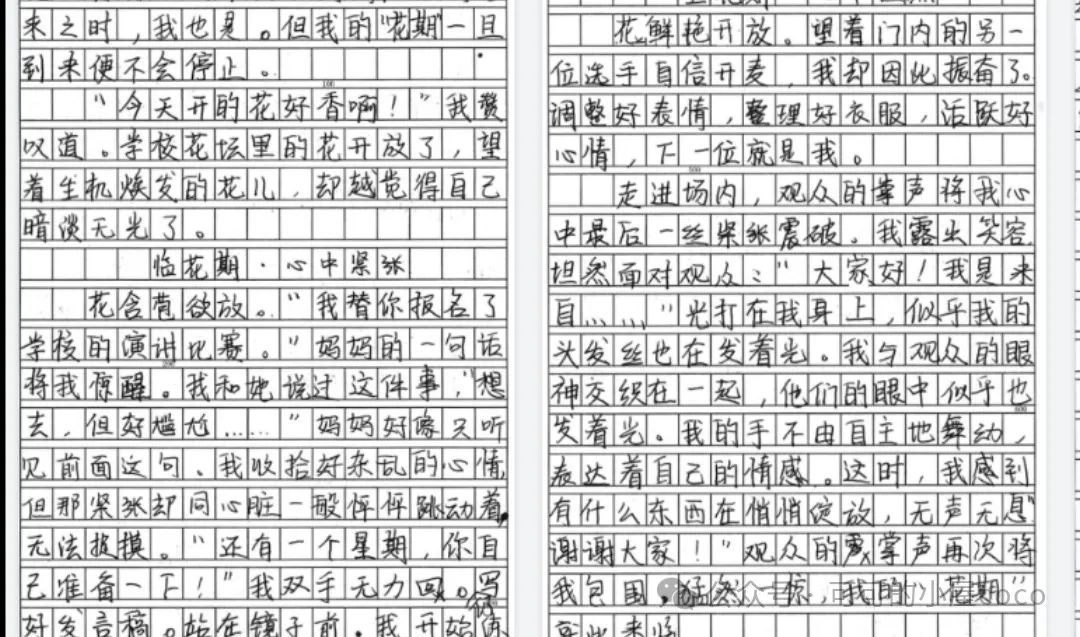 来之时，我也是。但我的“花期”一旦
到来便不会停止。
100
“今天开的花好香啊！”我赞
叹道。学校花坛里的花开放了，望
着生机焕发的花儿，却越觉得自己
暗淡无光了。
临花期·心中紧张
花含苞欲放。“我替你报名了
学校的演讲比赛。”妈妈的一句话
将我惊醒。我和她说过这件事，“想
去，但好尴尬……”妈妈好像只听
见前面这句。我收拾好杂乱的心情，
但那紧张却同心脏一般怦怦跳动着，
无法捉摸。“还有一个星期，你自
己准备一下！”我双手无力回。写
好发言稿。站在镜子前，我开始
花鲜艳开放。望着门内的另一
位选手自信开麦，我却因此振奋了。
调整好表情，整理好衣服，活跃好
心情，下一位就是我。
500
走进场内，观众的掌声将我心
中最后一丝紧张震破。我露出笑容，
坦然面对观众：“大家好！我是来
自……”光打在我身上，似乎我的
头发丝也在发着光。我与观众的眼
神交织在一起，他们的眼中似乎也
600
发着光。我的手不由自主地舞动，
表达着自己的情感。这时，我感到
有什么东西在悄悄绽放，无声无息
谢谢大家！”观众的掌声再次将
我包围，猛然一惊，我的“花期”
就此来临
公众号·可可的小屋coco